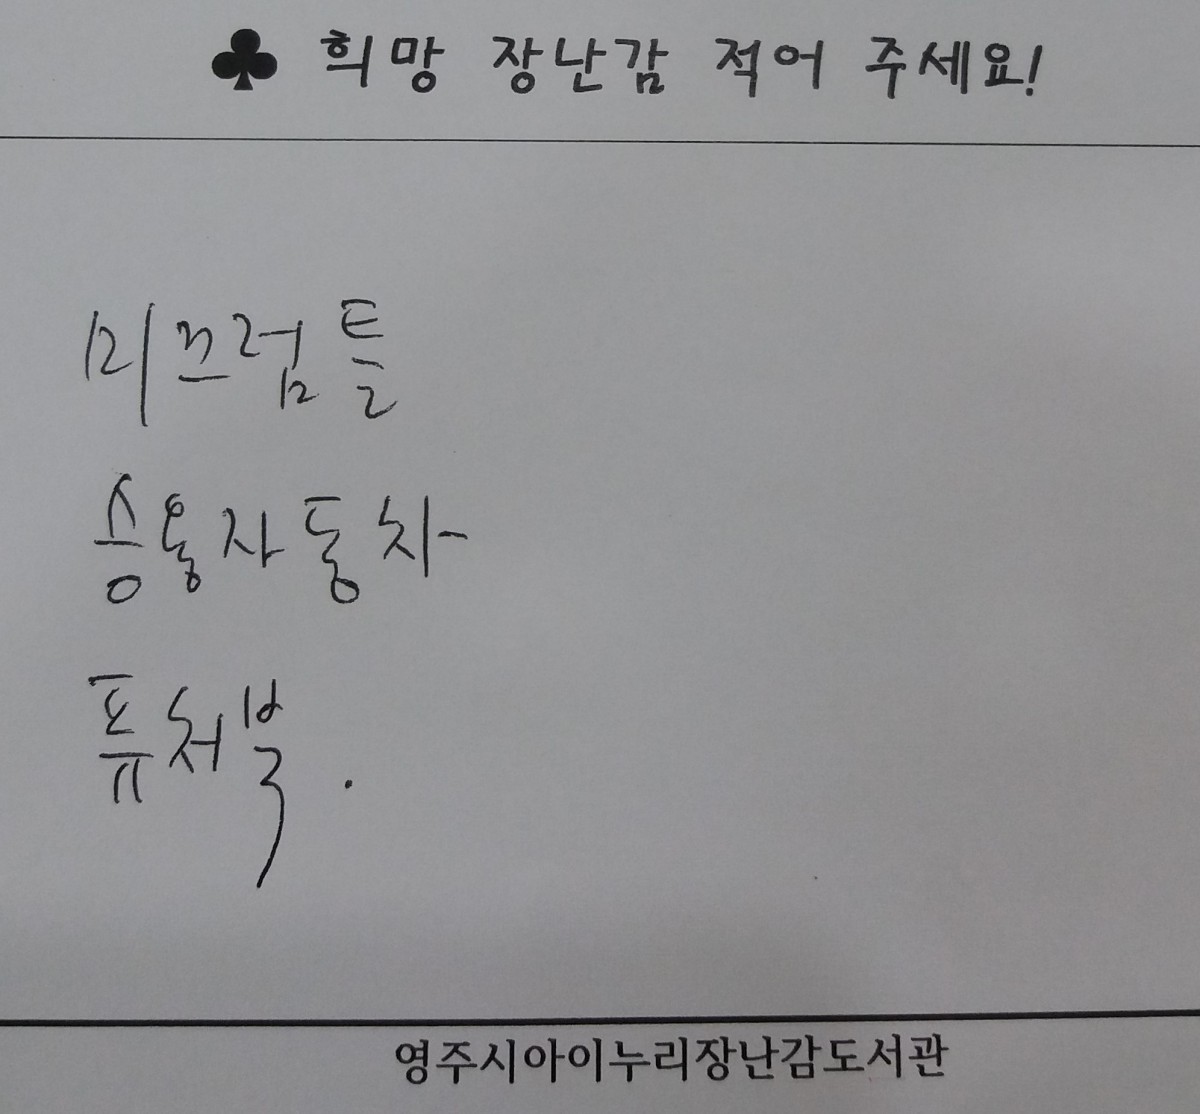 ♣ 희망 장난감 적어 주세요!
미끄럼틀
승용자동차
퓨처북.
영주시아이누리장난감도서관